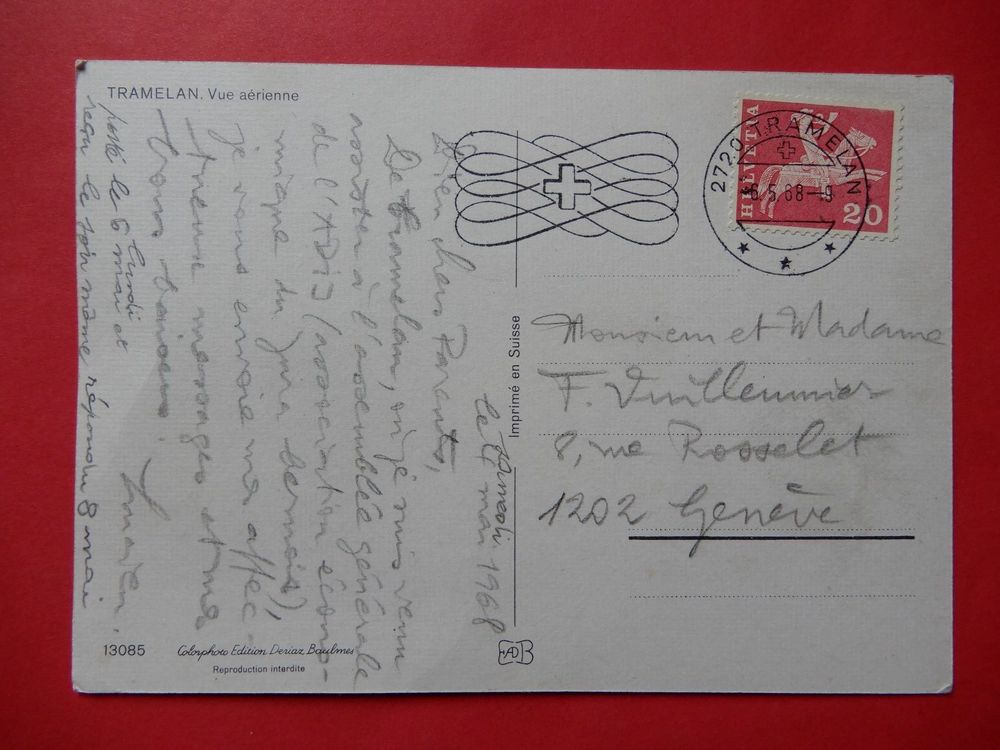 TRAMELAN. Vue aérienne
HELVETIA
20
2720 TRAMELAN
-6.5.68-19
Monsieur et Madame
F. Vuilleumier
8, rue Rosselet
1202 Genève
Imprimé en Suisse
Samedi
le 4 mai 1968
Bien chers Parents,
De Tramelan, où je suis venu
assister à l'assemblée générale
de l'ADIJ (association écono-
mique du Jura bernois),
je vous envoie ma affec-
tueuse messages et ma
bons baisers
Lucien.
posté le lundi
6 mai et
reçu le soir même répondu 8 mai
13085
Colorphoto Edition Deriaz Baulmes
Reproduction interdite